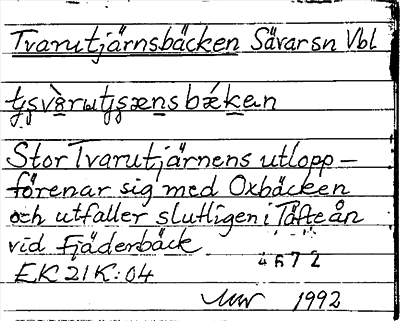 Tvarutjärnsbäcken Sävarsn Vbl
Stor Tvarutjärnens utlopp –
förenar sig med Oxbäcken
och utfaller slutligen i Täfteån
vid Fjäderbäck
4672
EK 21K:04
1992